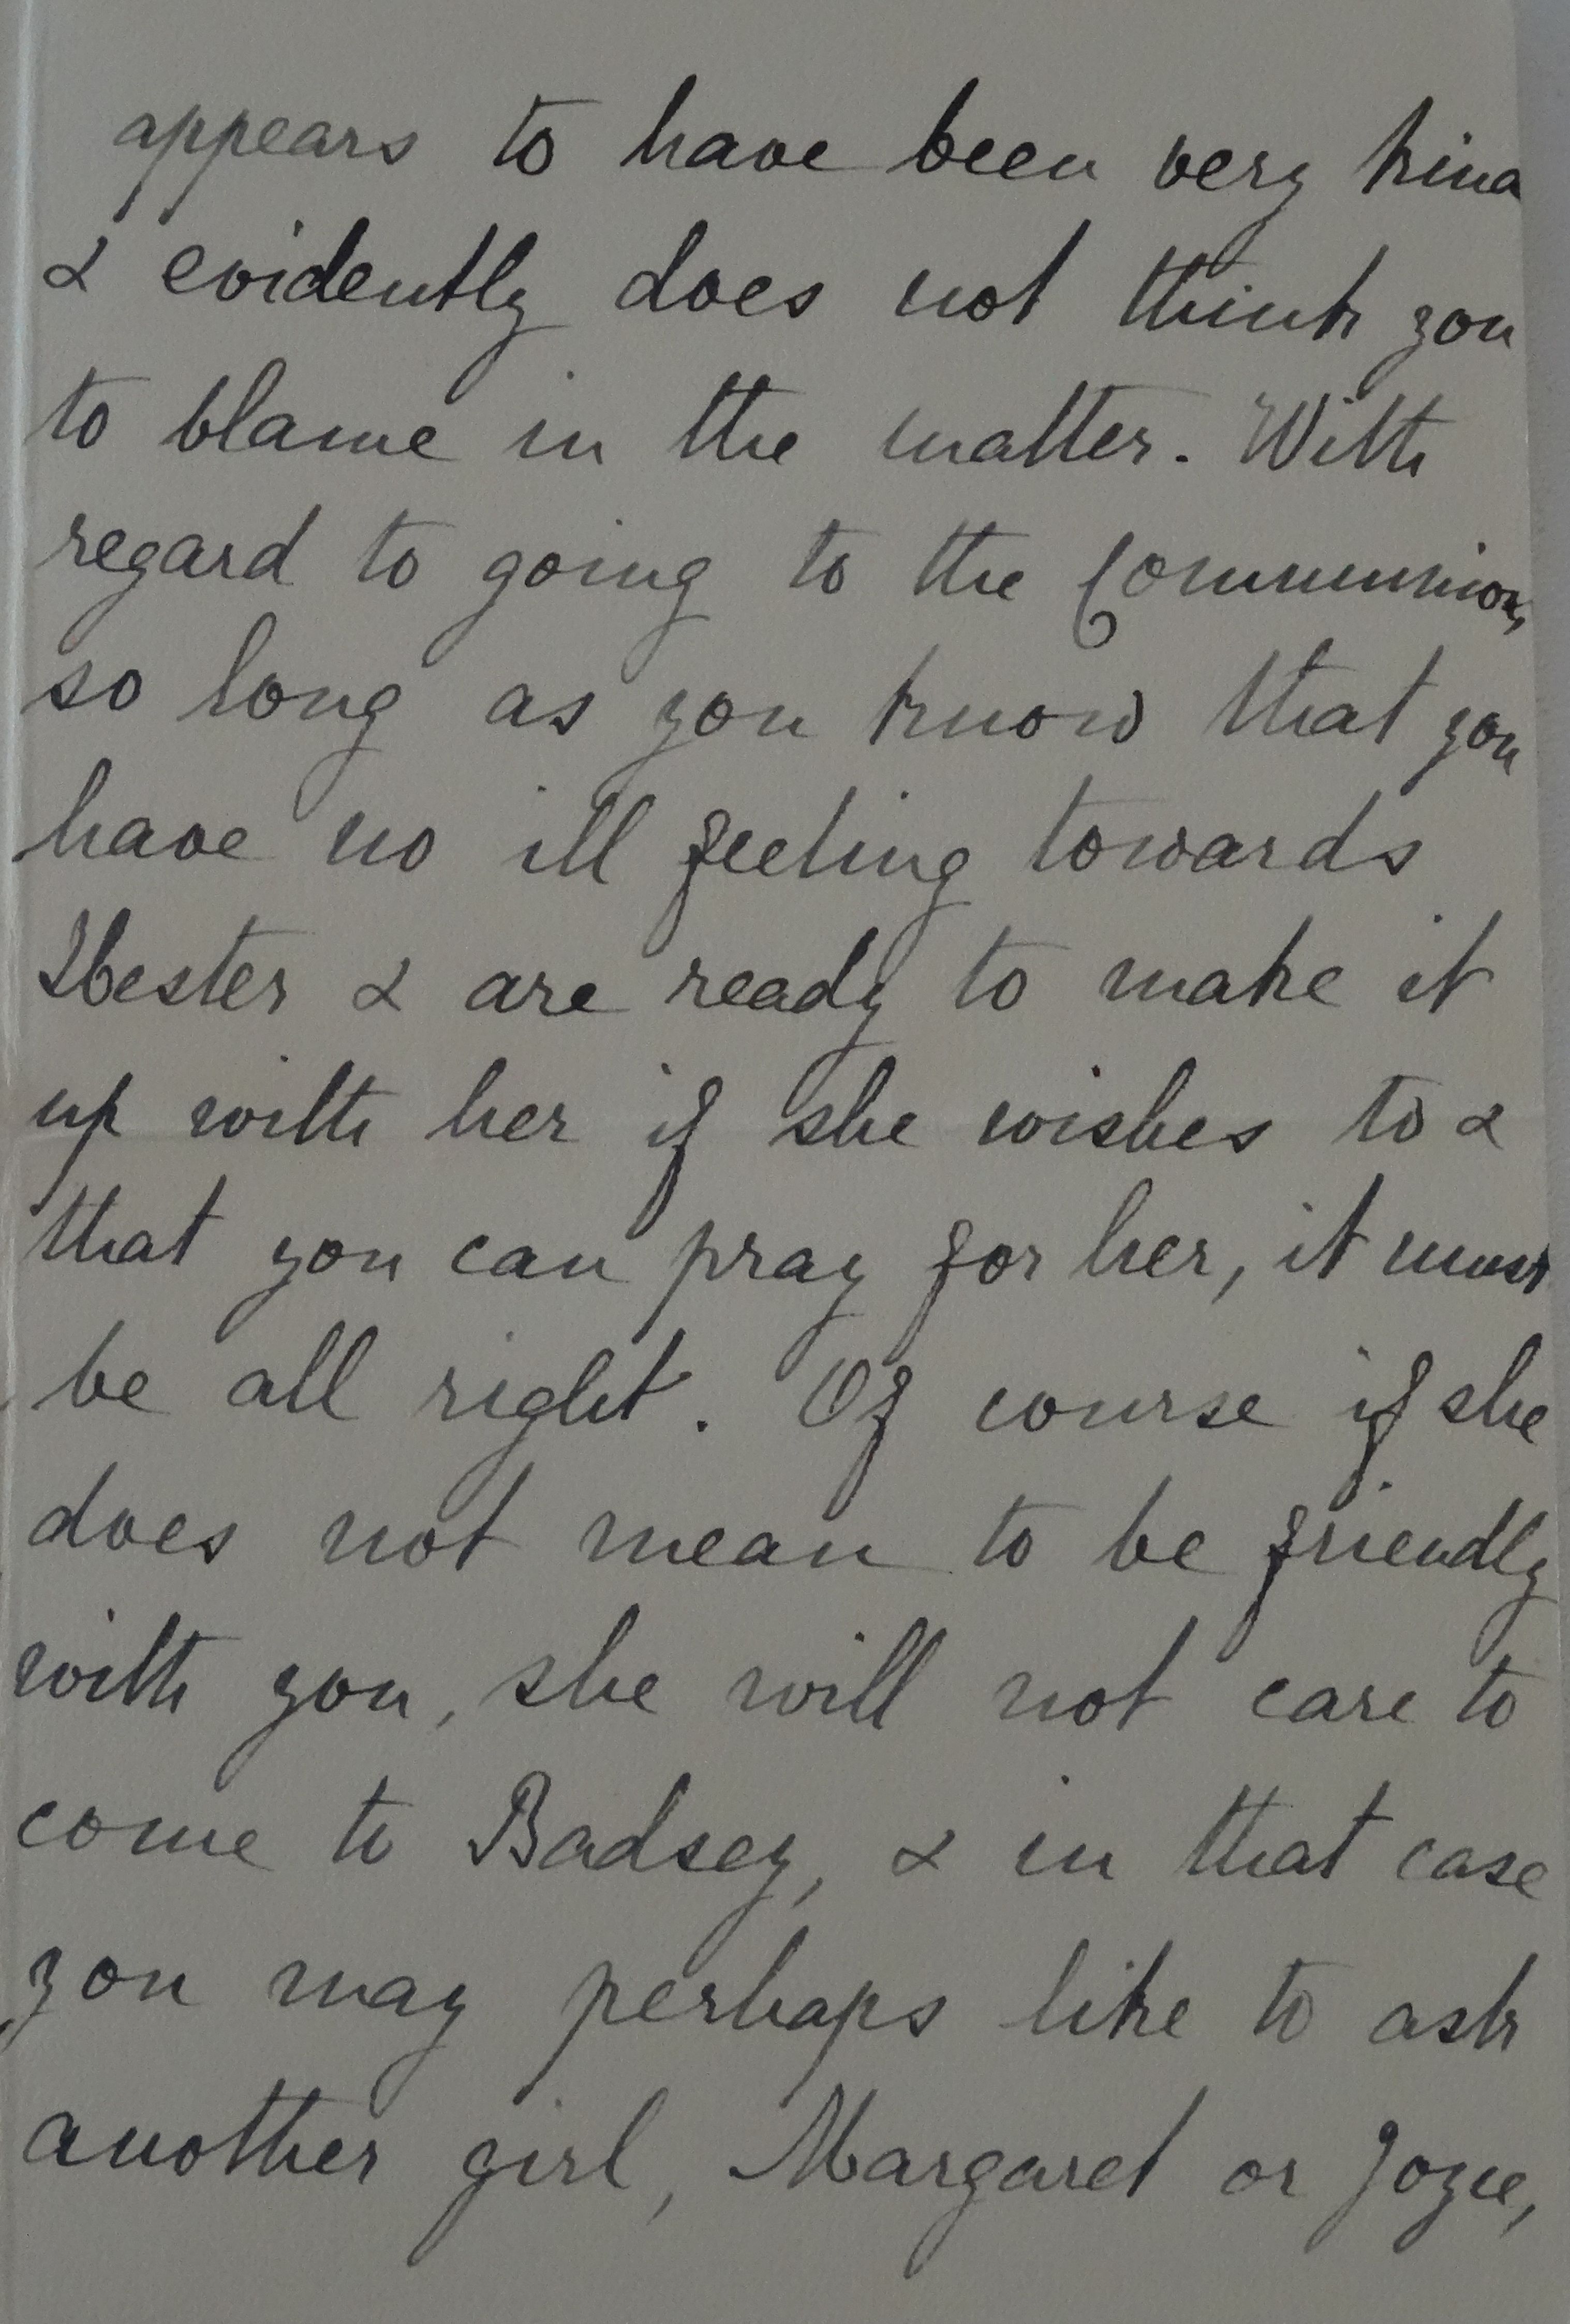 appears to have been very kind
& evidently does not think you
to blame in the matter. With
regard to going to the Communion,
so long as you know that you
have no ill feeling towards
Hester & are ready to make it
up with her if she wishes to &
that you can pray for her, it must
be all right. Of course if she
does not mean to be friendly
with you, she will not care to
come to Badsey, & in that case
you may perhaps like to ask
another girl, Margaret or Jozie,